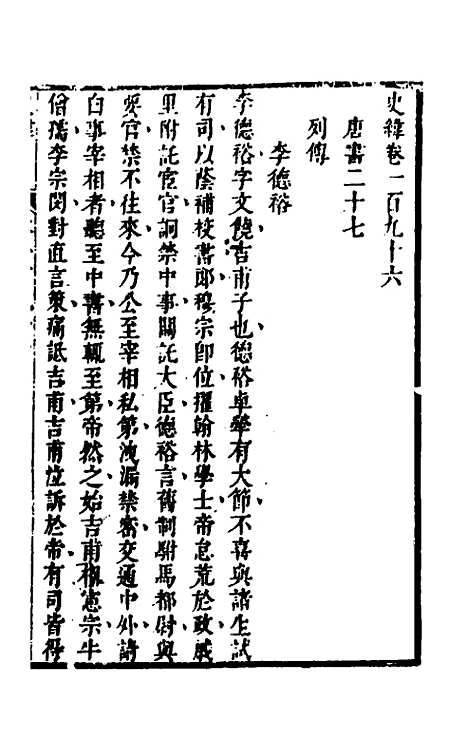 史緯卷一百九十六
唐書二十七
列傳
李德裕
李德裕字文饒吉甫子也德裕卓犖有大節不喜與諸生試
有司以蔭補校書郎穆宗卽位擢翰林學士帝怠荒於政戚
里附託宦官詗禁中事關託大臣德裕言舊制駙馬都尉與
要官禁不往來今乃公至宰相私第洩漏禁密交通中外請
白事宰相者聽至中書無輒至第帝然之始吉甫相憲宗牛
僧孺李宗閔對直言策痛詆吉甫吉甫泣訴於帝有司皆得